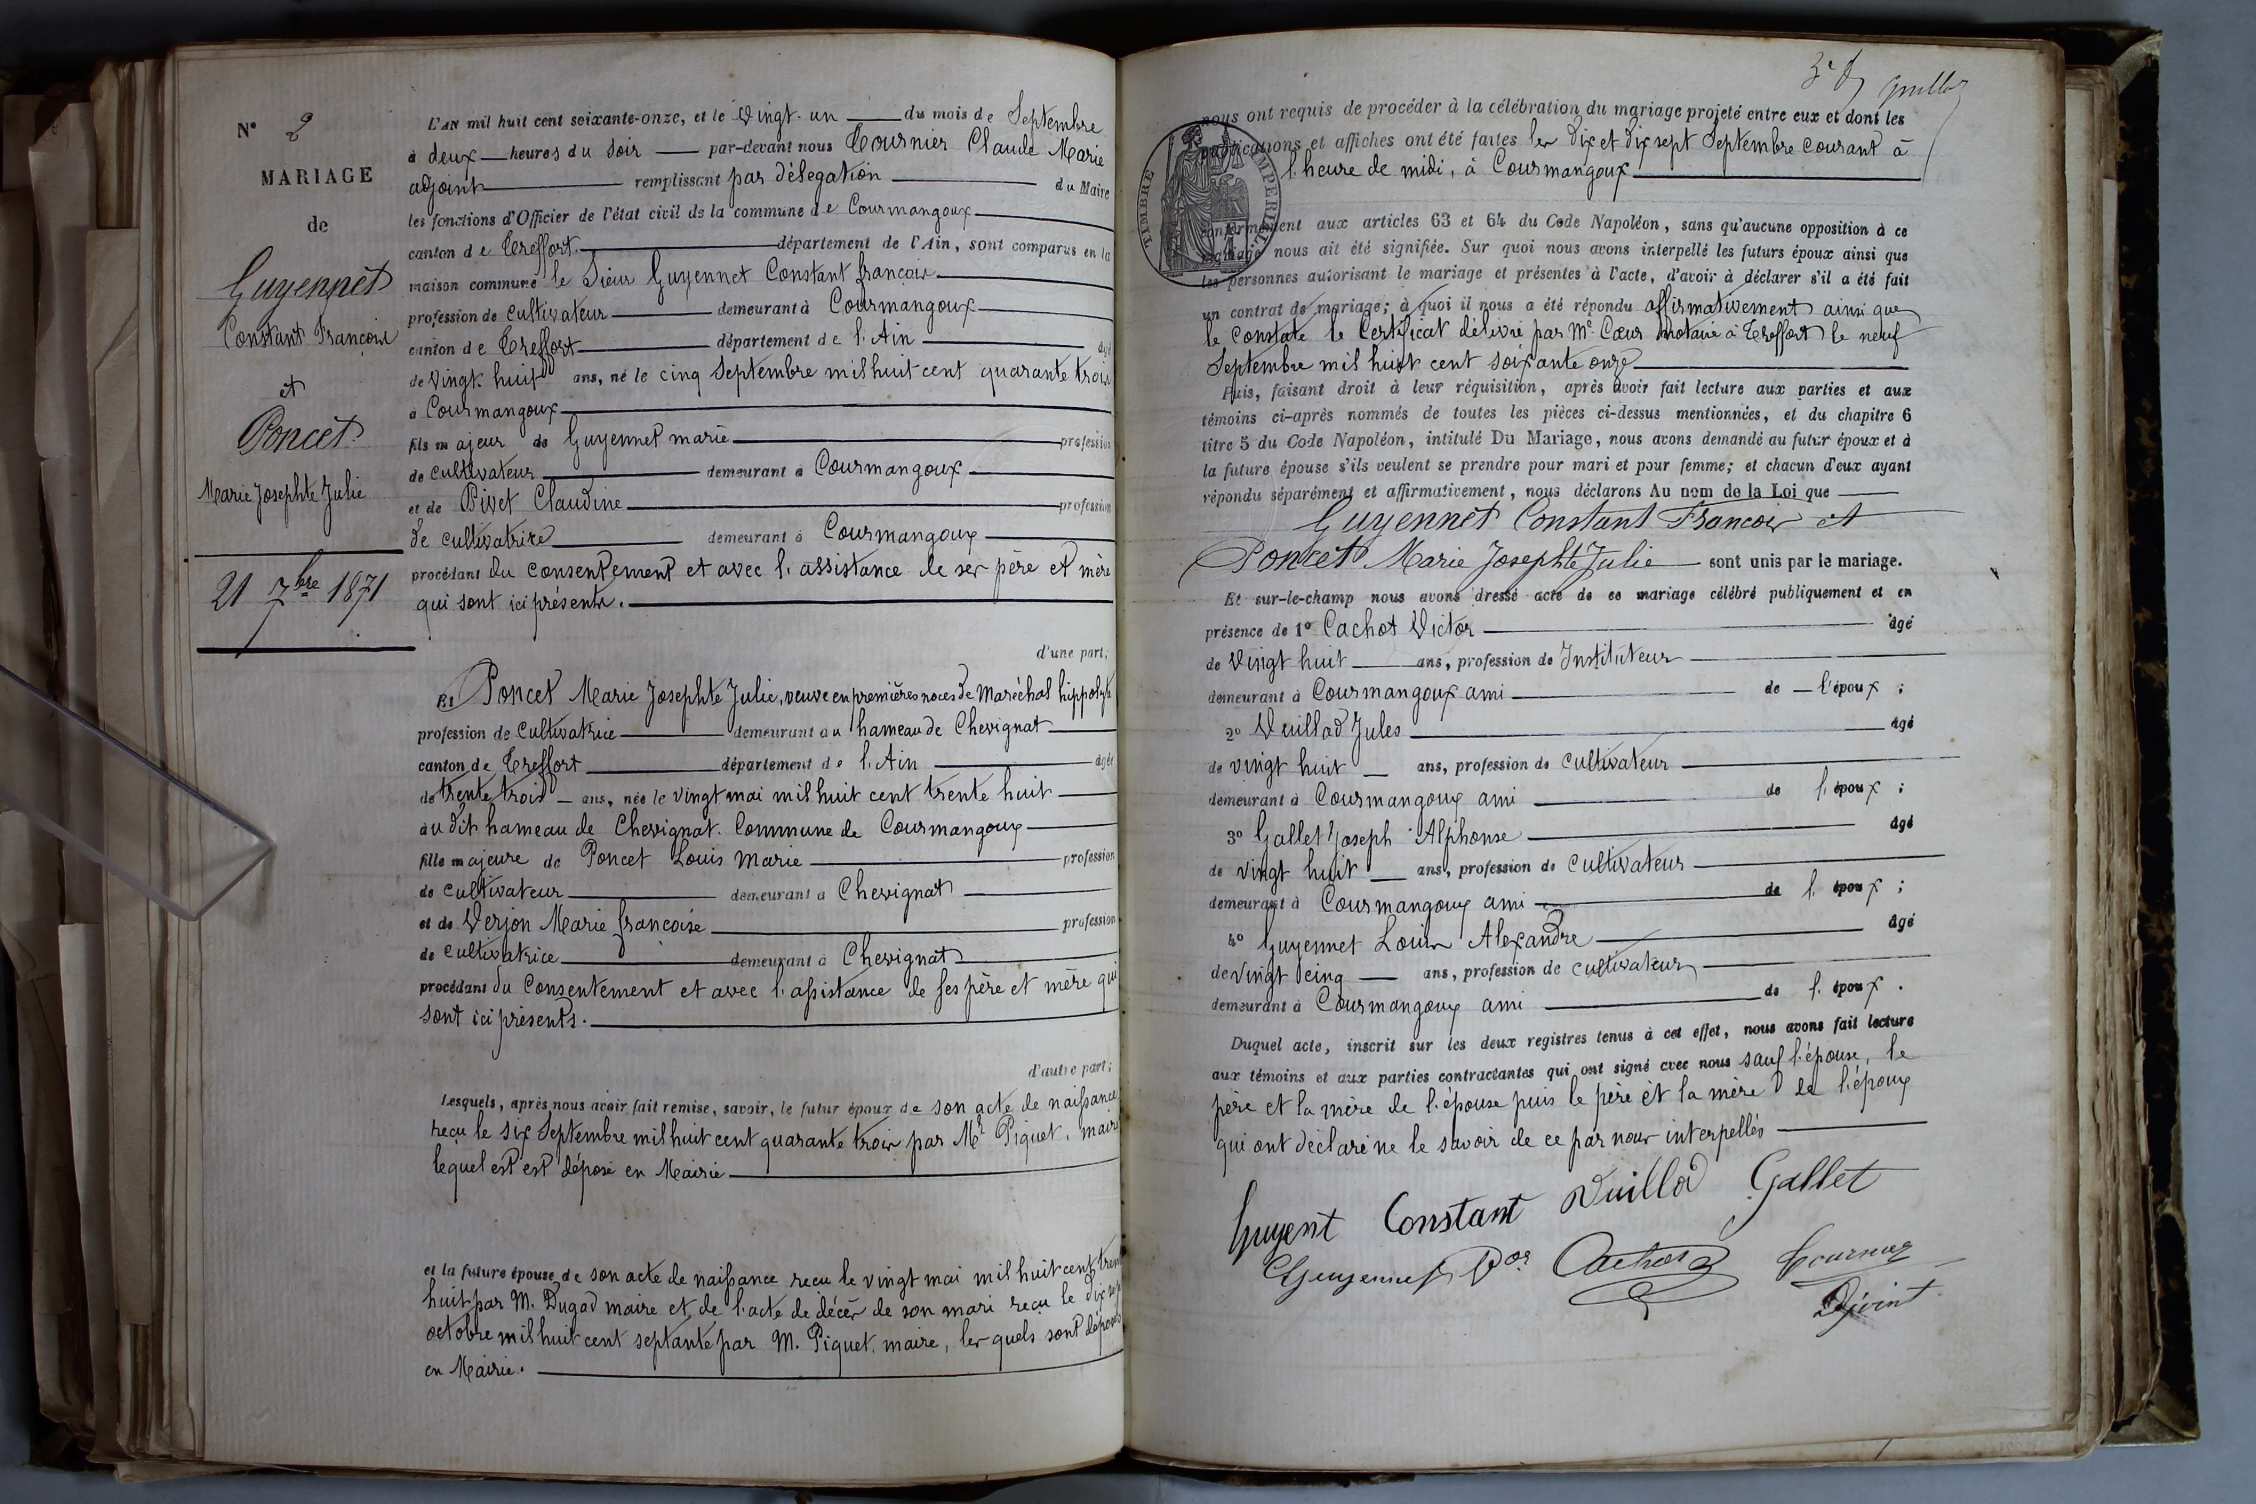 N° 2
MARIAGE
de
Guyennet
Constant François
et
Poncet
Marie Josephte Julie
21 7bre 1871
L'AN mil huit cent soixante-onze, et le Vingt-un du mois de Septembre
à deux heures du soir par-devant nous Tournier Claude Marie
adjoint remplissant par délegation du Maire
les fonctions d'Officier de l'état civil de la commune de Courmangoux
canton de Treffort département de l'Ain, sont comparus en la
maison commune le Sieur Guyennet Constant françois
profession de cultivateur demeurant à Courmangoux
canton de Treffort département de l'Ain âgé
de vingt-huit ans, né le cinq Septembre mil huit cent quarante trois
à Courmangoux
fils majeur de Guyennet marie profession
de cultivateur demeurant à Courmangoux
et de Pivet Claudine profession
de cultivatrice demeurant à Courmangoux
procédant du consentement et avec l'assistance de ses père et mère
qui sont ici présents.
d'une part;
Et Poncet Marie Josephte Julie, veuve en premières noces de Maréchal hippolyte
profession de cultivatrice demeurant au hameau de Chevignat
canton de Treffort département de l'Ain âgée
de trente trois ans, née le vingt mai mil huit cent trente huit
au dit hameau de Chevignat. Commune de Courmangoux
fille majeure de Poncet Louis Marie profession
de cultivateur demeurant à Chevignat
et de Verjon Marie françoise profession
de cultivatrice demeurant à Chevignat
procédant du Consentement et avec l'assistance de ses père et mère qui
sont ici présents.
d'autre part;
Lesquels, après nous avoir fait remise, savoir, le futur époux de son acte de naissance
reçu le six Septembre mil huit cent quarante trois par Mr Piquet, maire
lequel est est déposé en Mairie
et la future épouse de son acte de naissance reçu le vingt mai mil huit cent trente
huit par M. Dugad maire et de l'acte de décès de son mari reçu le dix sept
octobre mil huit cent septante par M. Piquet, maire, lesquels sont déposés
en Mairie.
nous ont requis de procéder à la célébration du mariage projeté entre eux et dont les
publications et affiches ont été faites les dix et dix sept Septembre courant à
l'heure de midi, à Courmangoux
TIMBRE IMPERIAL
conformément aux articles 63 et 64 du Code Napoléon, sans qu'aucune opposition à ce
mariage nous ait été signifiée. Sur quoi nous avons interpellé les futurs époux ainsi que
les personnes autorisant le mariage et présentes à l'acte, d'avoir à déclarer s'il a été fait
un contrat de mariage; à quoi il nous a été répondu affirmativement ainsi que
le constate le Certificat délivré par Me Cœur notaire à Treffort le neuf
Septembre mil huit cent soixante onze
Puis, faisant droit à leur réquisition, après avoir fait lecture aux parties et aux
témoins ci-après nommés de toutes les pièces ci-dessus mentionnées, et du chapitre 6
titre 5 du Code Napoléon, intitulé Du Mariage, nous avons demandé au futur époux et à
la future épouse s'ils veulent se prendre pour mari et pour femme; et chacun d'eux ayant
répondu séparément et affirmativement, nous déclarons Au nom de la Loi que
Guyennet Constant Francois et
Poncet Marie Josephte Julie sont unis par le mariage.
Et sur-le-champ nous avons dressé acte de ce mariage célébré publiquement et en
présence de 1° Cachot Victor âgé
de Vingt huit ans, profession de Instituteur
demeurant à Courmangoux ami de l'époux;
2° Vuillad Jules âgé
de vingt huit ans, profession de cultivateur
demeurant à Courmangoux ami de l'époux;
3° Gallet Joseph Alphonse âgé
de vingt huit ans, profession de cultivateur
demeurant à Courmangoux ami de l'époux;
4° Guyennet Louis Alexandre âgé
de vingt cinq ans, profession de cultivateur
demeurant à Courmangoux ami de l'époux.
Duquel acte, inscrit sur les deux registres tenus à cet effet, nous avons fait lecture
aux témoins et aux parties contractantes qui ont signé avec nous sauf l'épouse, le
père et la mère de l'épouse puis le père et la mère de l'époux
qui ont déclaré ne le savoir de ce par nous interpellés
Guyent Constant Vuillod Gallet
Guyennet Cachot Tournier
Adjoint